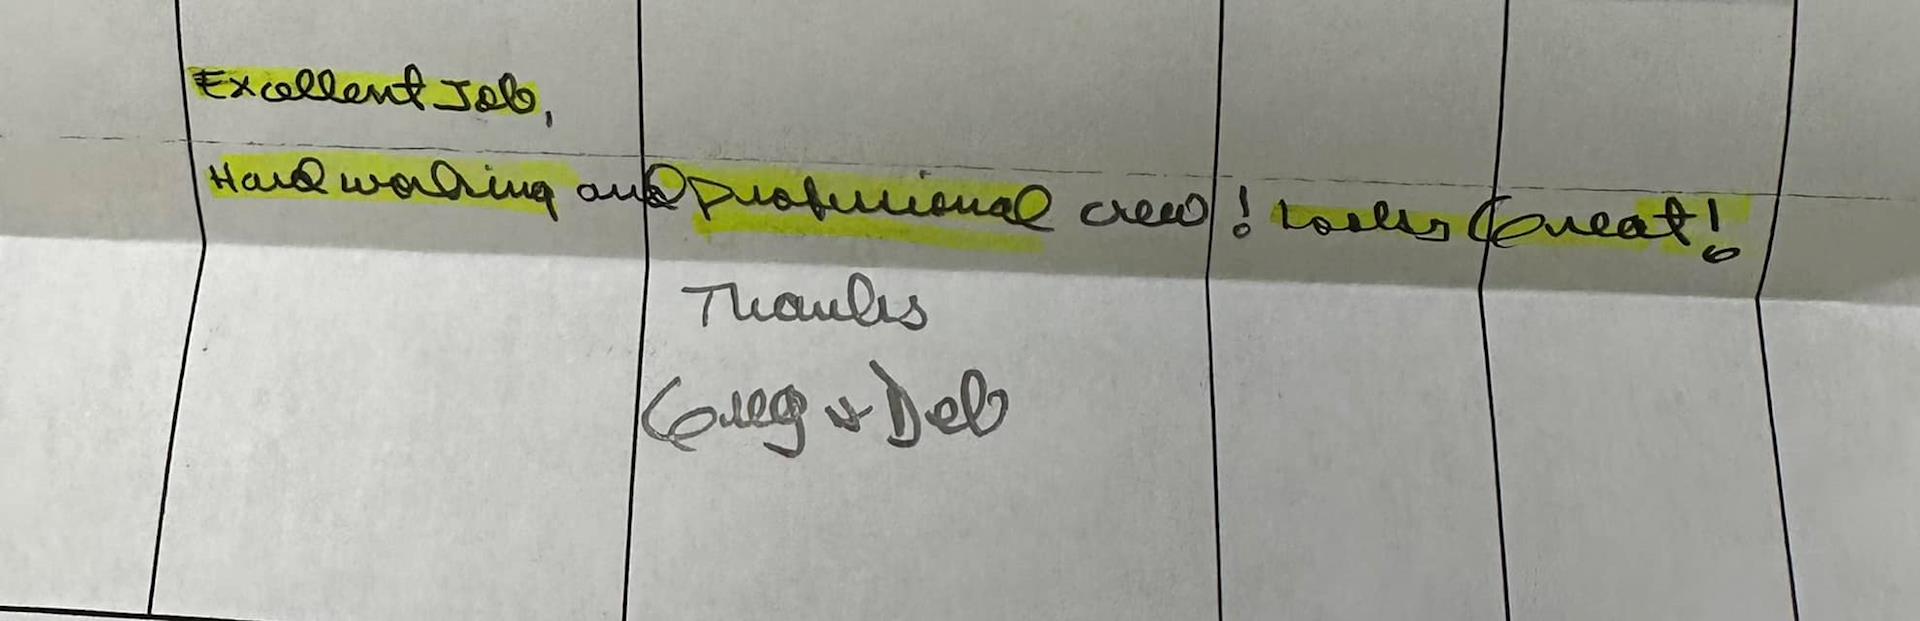 Excellent Job,
Hard working and professional crew! Looks Great!
Thanks
Greg & Deb